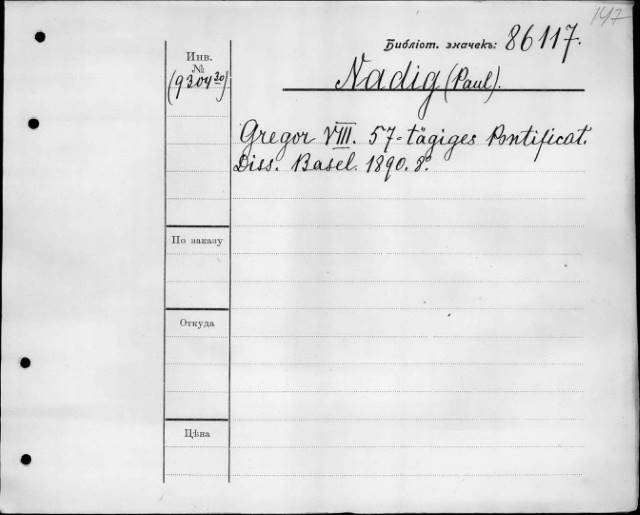 147
Библіот. значекъ: 86117.
Инв.
№
(9304 30)
Nadig (Paul).
Gregor VIII. 57-tägiges Pontificat.
Diss. Basel. 1890. 8º.
По заказу
Откуда
Цѣна